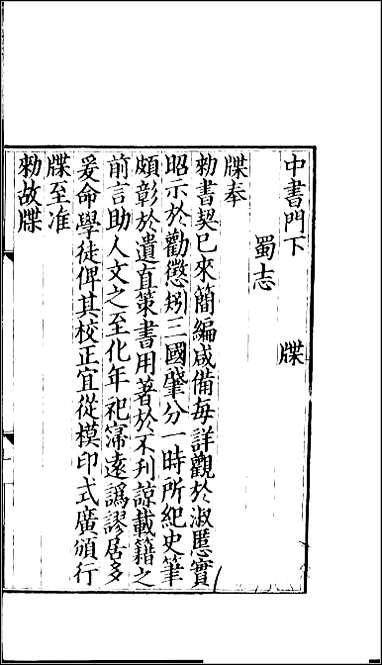 中書門下　　　牒
蜀志
牒奉
勑書契已來簡編咸備每詳觀於淑慝實
昭示於勸懲矧三國肇分一時所紀史筆
頗彰於遺直策書用著於不刊諒載籍之
前言助人文之至化年祀寖遠譌謬居多
爰命學徒俾其校正宜從模印式廣頒行
牒至准
勑故牒